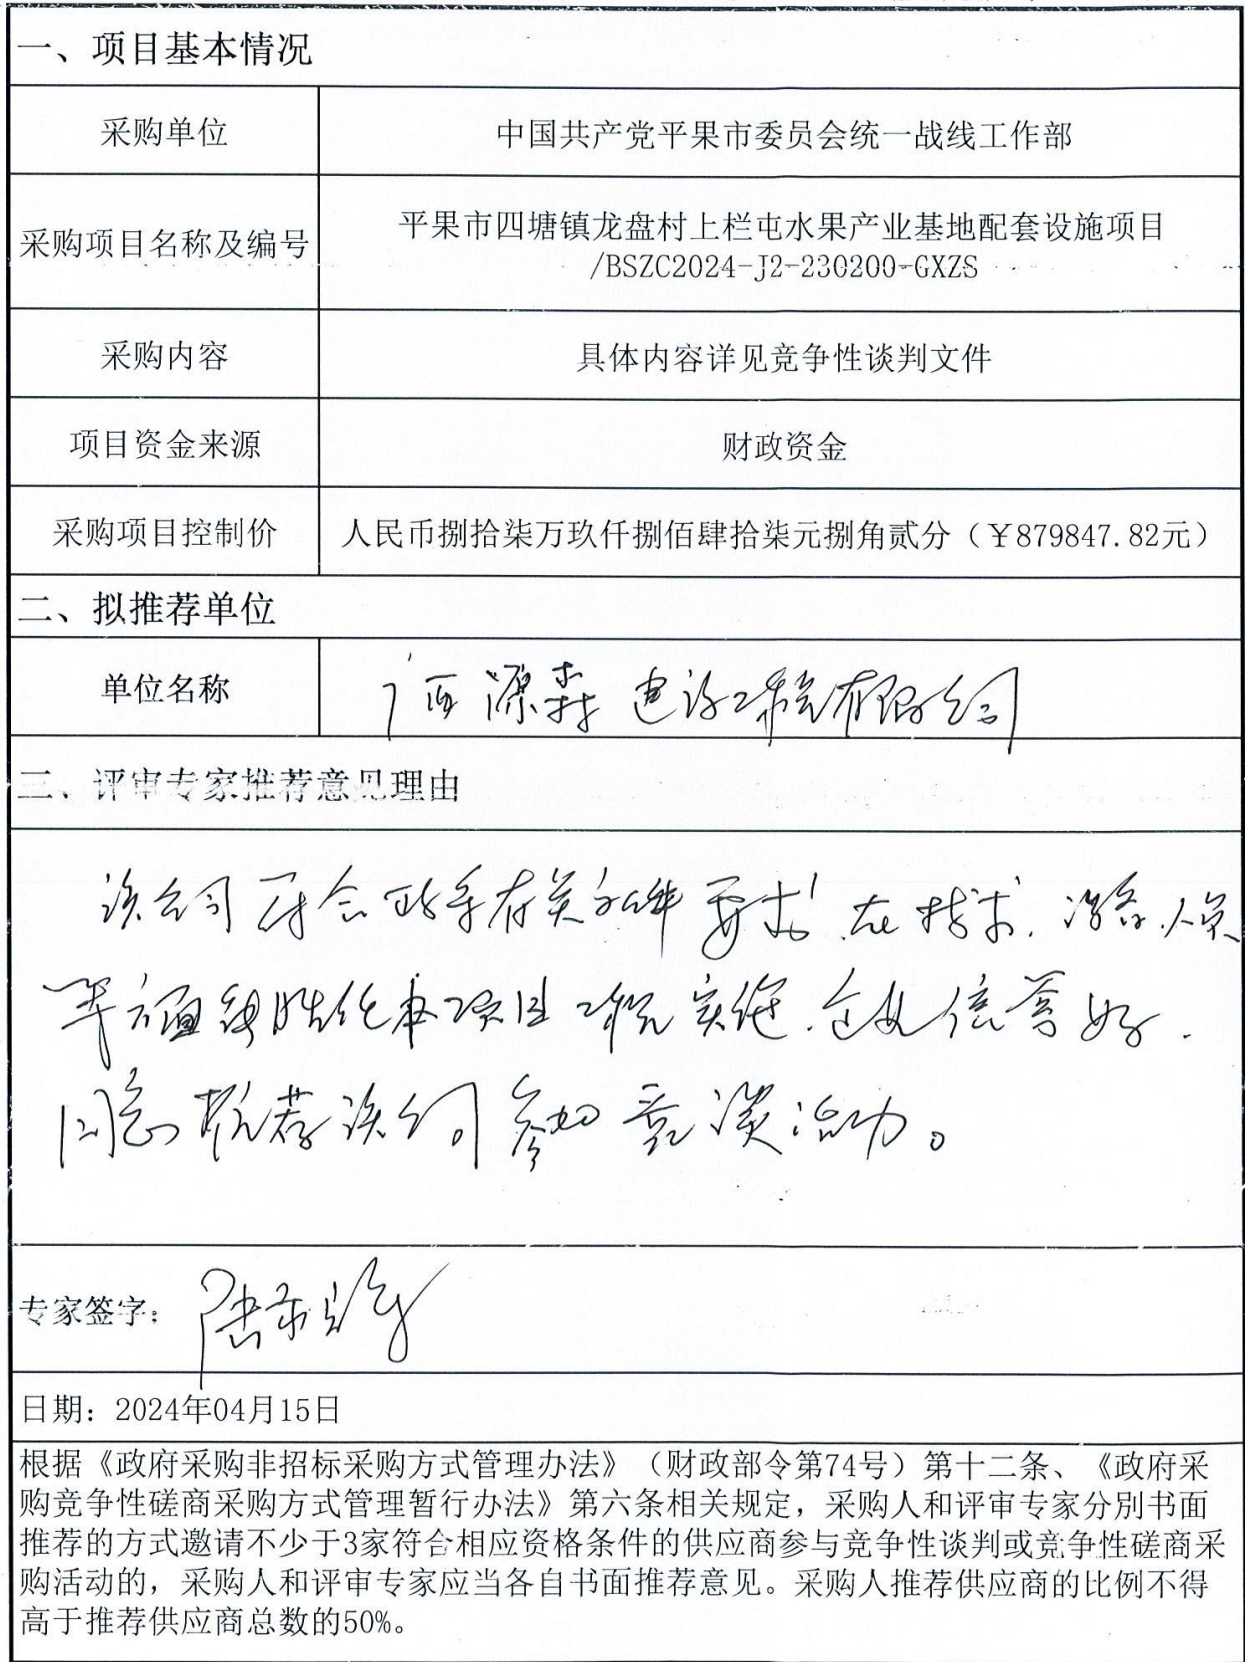 一、项目基本情况
采购单位
中国共产党平果市委员会统一战线工作部
采购项目名称及编号
平果市四塘镇龙盘村上栏屯水果产业基地配套设施项目
/BSZC2024-J2-230200-GXZS
采购内容
具体内容详见竞争性谈判文件
项目资金来源
财政资金
采购项目控制价
人民币捌拾柒万玖仟捌佰肆拾柒元捌角贰分（￥879847.82元）
二、拟推荐单位
单位名称
广西源森建设工程有限公司
三、评审专家推荐意见理由
该公司符合政采有关文件要求，在技术、设备、人员
等方面能胜任本项目工程实施，企业信誉好，
同意推荐该公司参加竞谈活动。
专家签字：
日期：2024年04月15日
根据《政府采购非招标采购方式管理办法》（财政部令第74号）第十二条、《政府采
购竞争性磋商采购方式管理暂行办法》第六条相关规定，采购人和评审专家分别书面
推荐的方式邀请不少于3家符合相应资格条件的供应商参与竞争性谈判或竞争性磋商采
购活动的，采购人和评审专家应当各自书面推荐意见。采购人推荐供应商的比例不得
高于推荐供应商总数的50%。